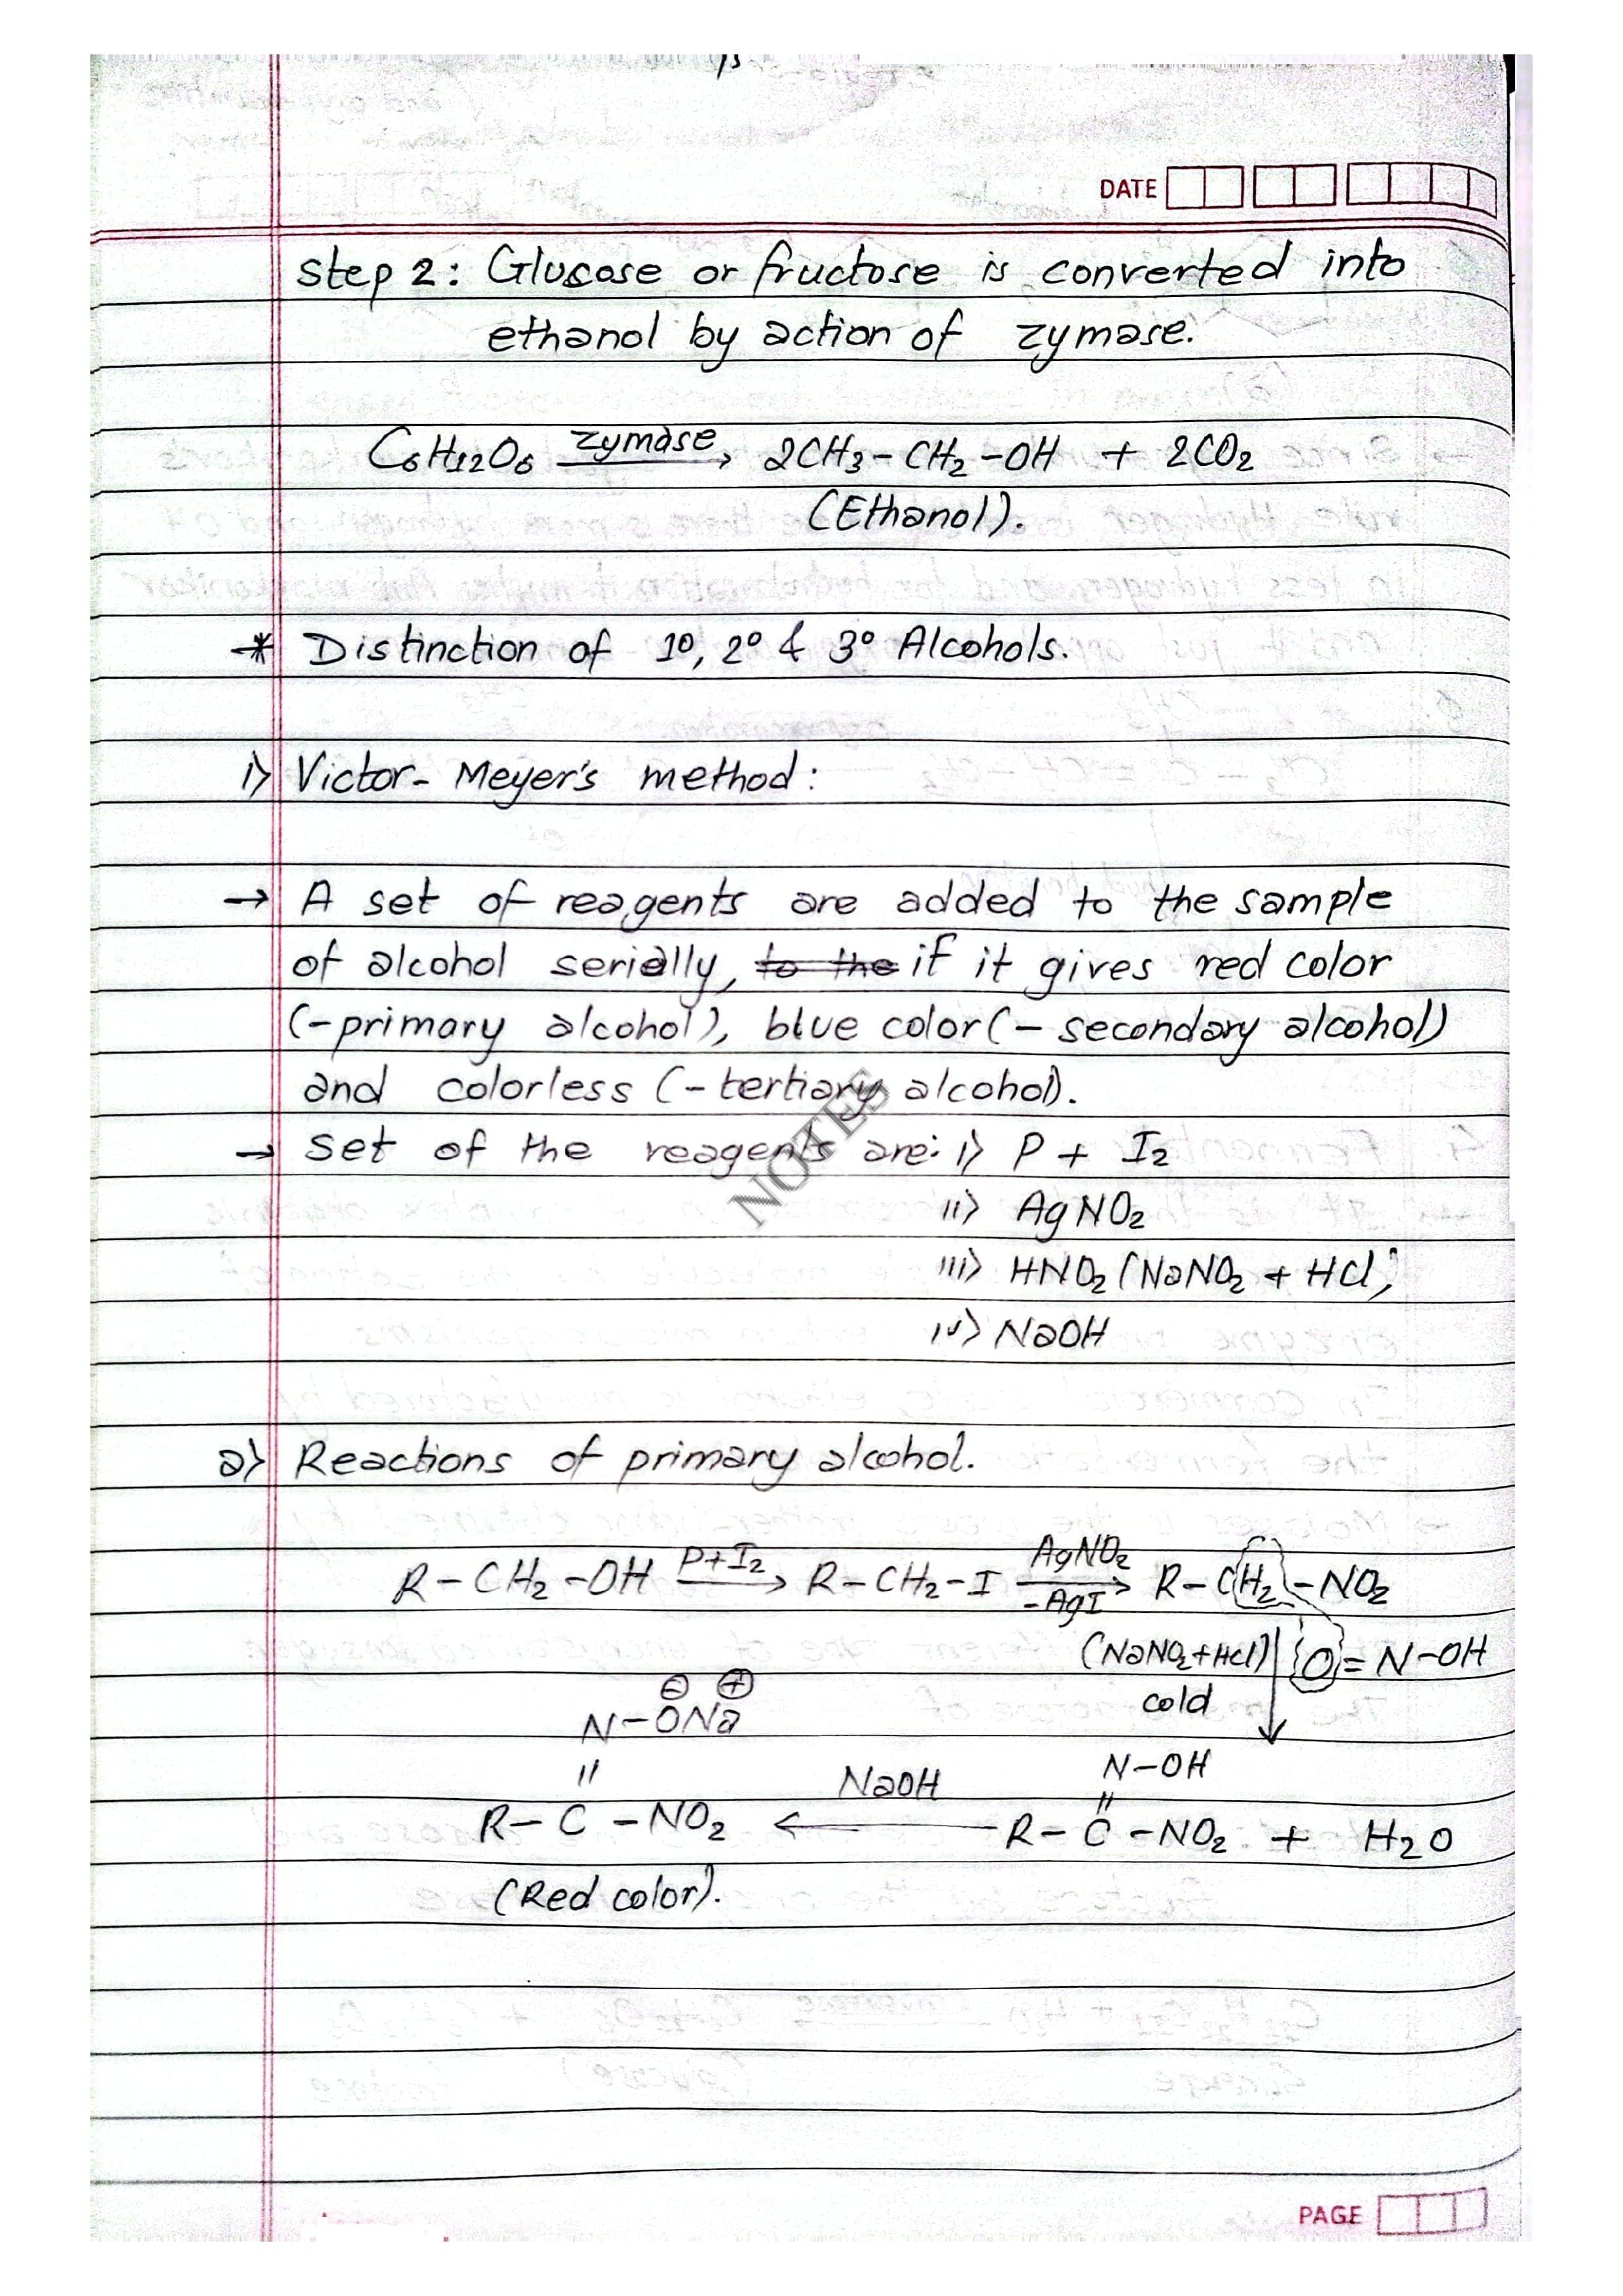 DATE
Step 2: Glucose or fructose is converted into
ethanol by action of zymase.
C6H12O6 —zymase→ 2CH3-CH2-OH + 2CO2
(Ethanol).
* Distinction of 1º, 2º & 3º Alcohols.
i) Victor-Meyer's method:
→ A set of reagents are added to the sample
of alcohol serially, to the if it gives red color
(-primary alcohol), blue color (- secondary alcohol)
and colorless (-tertiary alcohol).
→ set of the reagents are: i) P + I2
ii) AgNO2
iii) HNO2 (NaNO2 + HCl)
iv) NaOH
NOTES
a) Reactions of primary alcohol.
R-CH2-OH —P+I2→ R-CH2-I —AgNO2/-AgI→ R-CH2-NO2
(NaNO2+HCl) O=N-OH
cold
⊖ ⊕
N-ONa
N-OH
|| NaOH ||
R-C-NO2 ← R-C-NO2 + H2O
(Red color).
PAGE